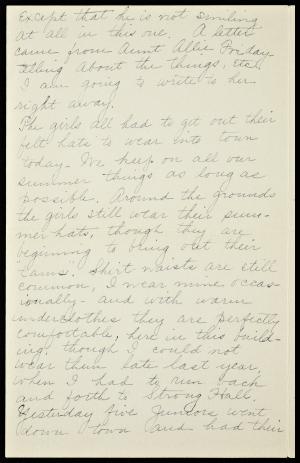 Except that he is not smiling
at all in this one. A letter
came from Aunt Allie Friday
telling about the things, etc.
I am going to write to her
right away.
The girls all had to get out their
felt hats to wear into town
today. We keep on all our
summer things as long as
possible. Around the grounds
the girls still wear their sum-
mer hats, though they are
beginning to bring out their
tams. Shirt waists are still
common, I wear mine occas-
ionally - and with warm
underclothes they are perfectly
comfortable, here in this build-
ing, though I could not
wear them late last year,
when I had to run back
and forth to Strong Hall.
Yesterday five Juniors went
down town and had their